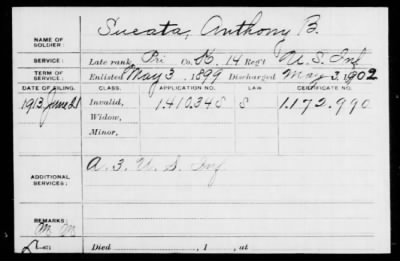 NAME OF SOLDIER: Sucata, Anthony B.
SERVICE: Late rank, Pri Co. K, 14 Reg't U. S. Inf
TERM OF SERVICE: Enlisted May 3, 1899 Discharged May 2, 1902
DATE OF FILING. CLASS. APPLICATION NO. LAW CERTIFICATE NO.
1913 June 21 Invalid, 1.410.348 S 1.172.990
Widow,
Minor,
ADDITIONAL SERVICES: A. 3. U. S. Inf
REMARKS:
Died , 1 , at